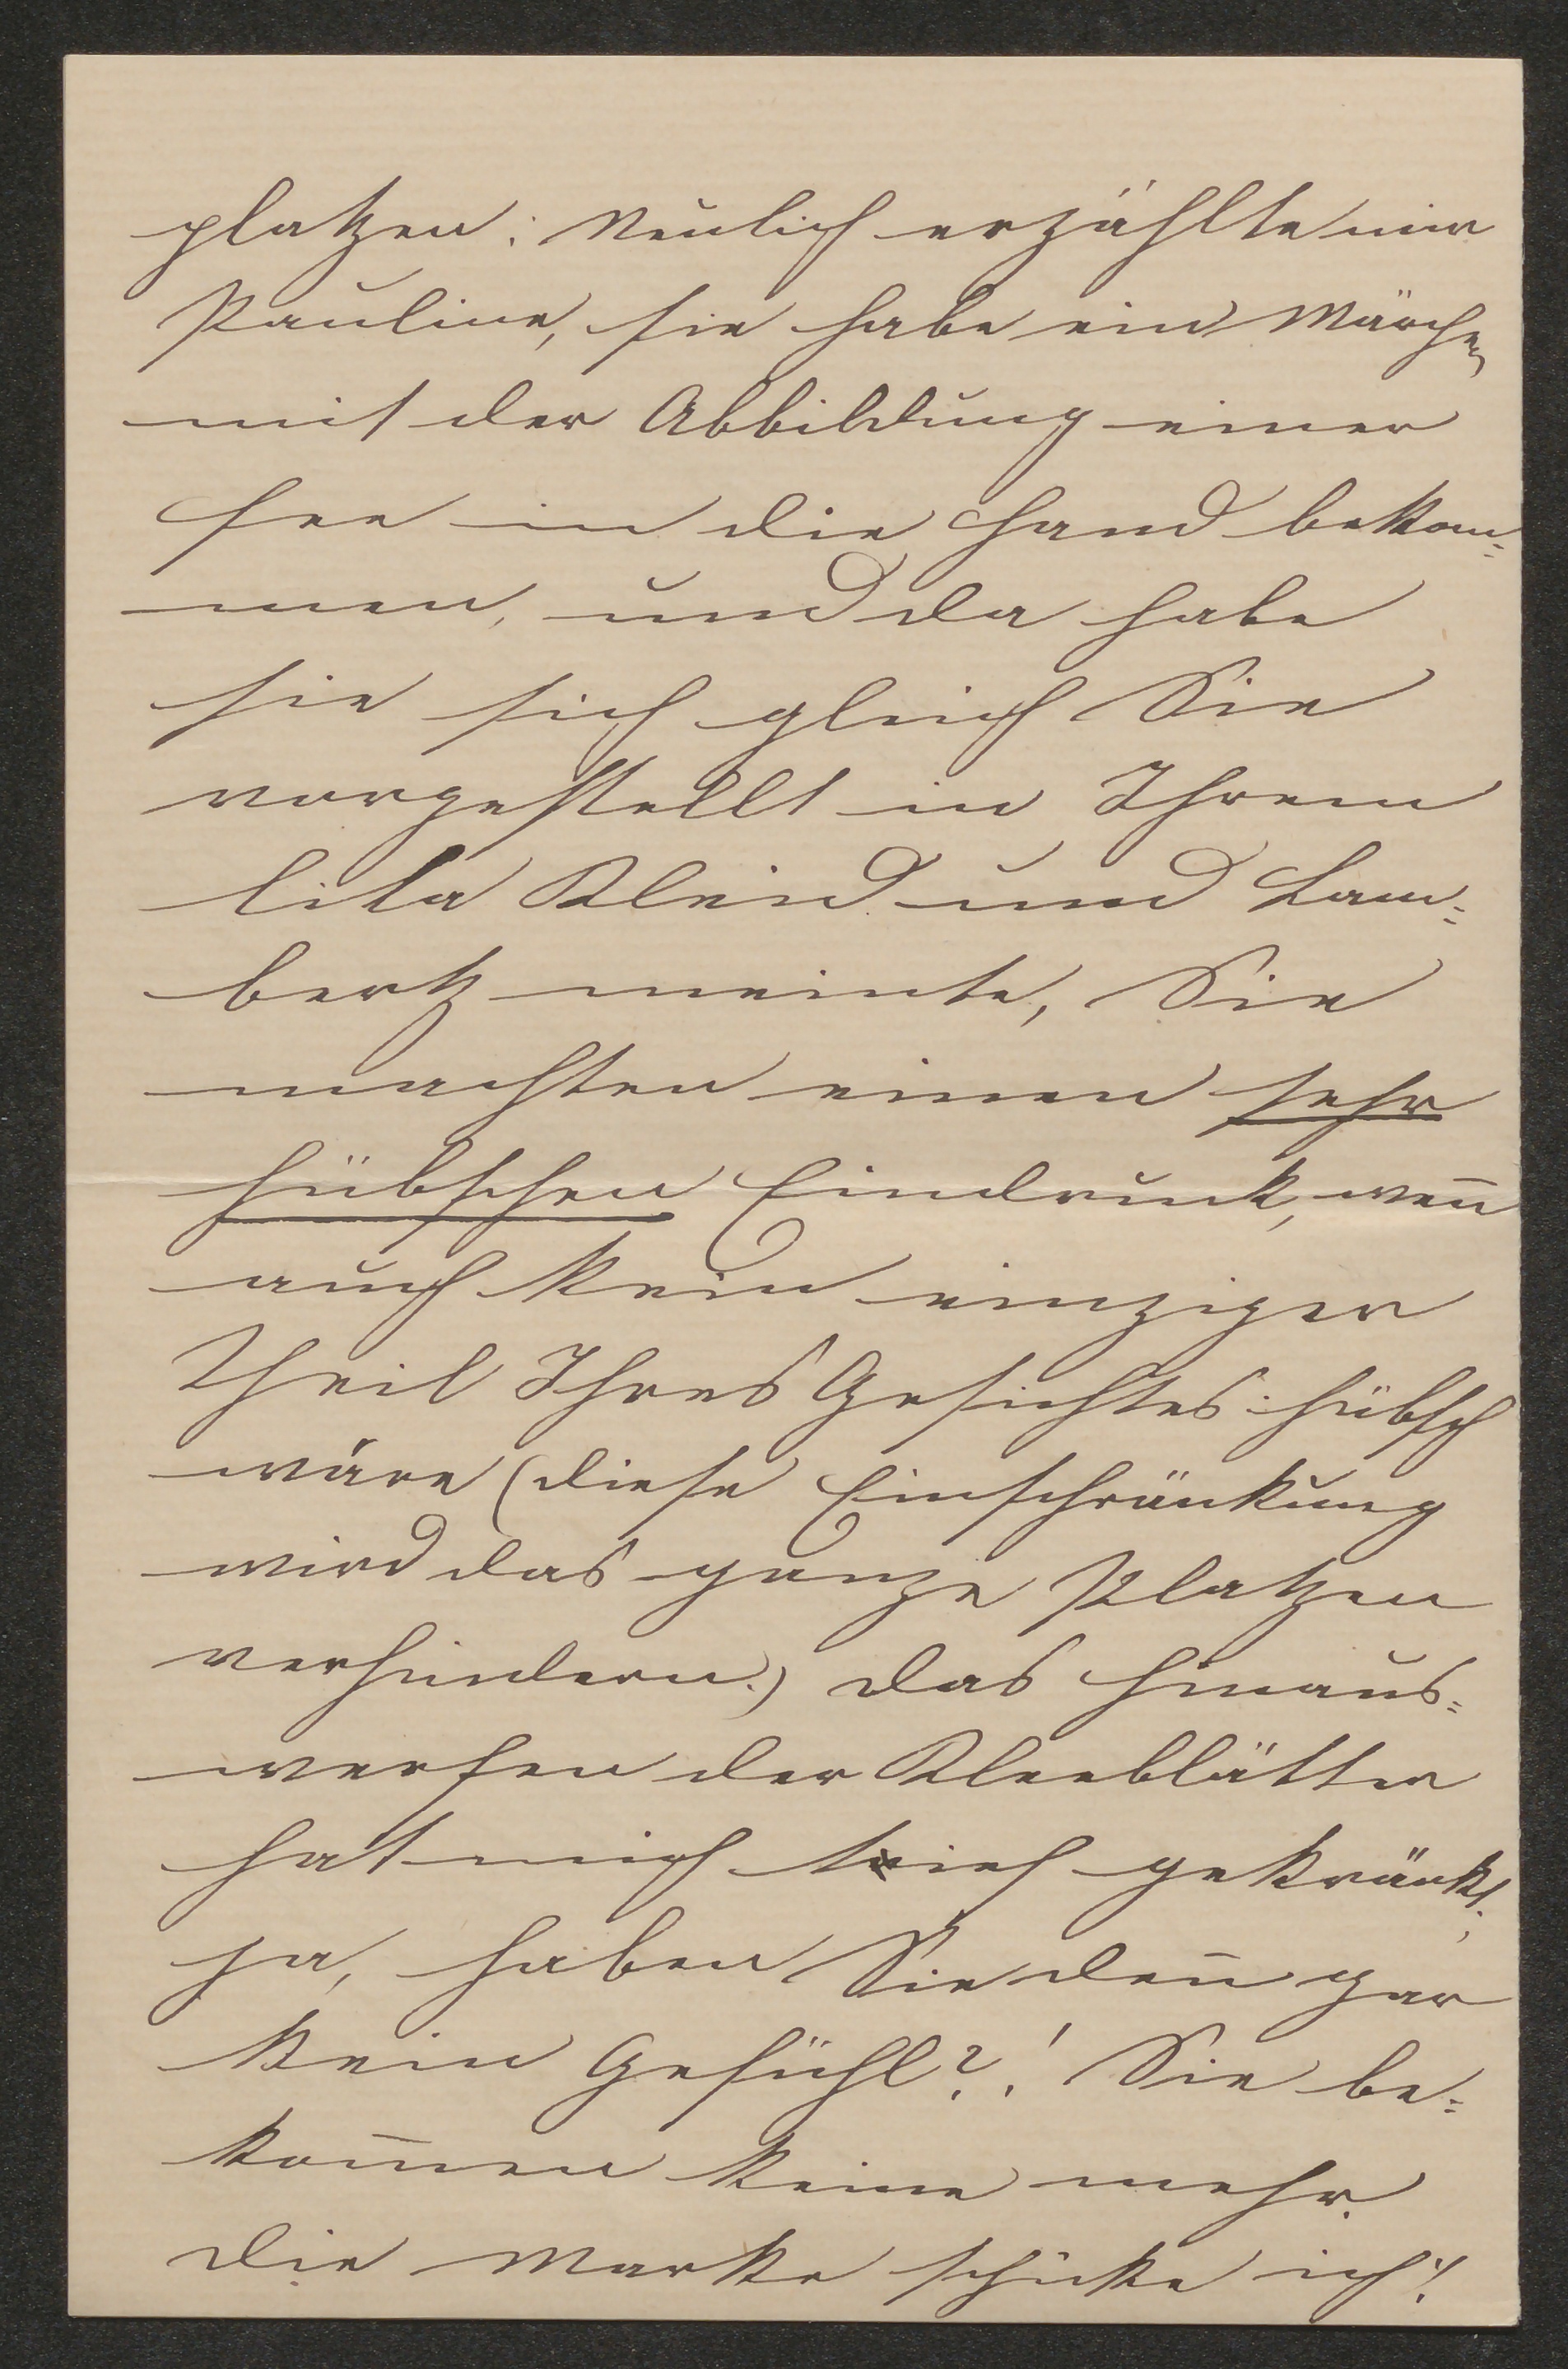 platzen: Neulich erzählte mir
Pauline, sie habe ein Märchen
mit der Abbildung einer
Fee in die Hand bekom=
men, und da habe
sie sich gleich Sie
vorgestellt in Ihrem
lila Kleid und Lam=
bertz meinte, Sie
machten einen sehr
hübschen Eindruck, wen̅
auch kein einziger
Theil Ihres Gesichtes hübsch
wäre (diese Einschränkung
wird das ganze Platzen
verhindern.) Das Hinaus=
werfen der Kleeblätter
hat mich tief gekränkt;
ja, haben Sie den̅ gar
kein Gefühl?! Sie be=
kom̅en keine mehr.
Die Marke schicke ich!